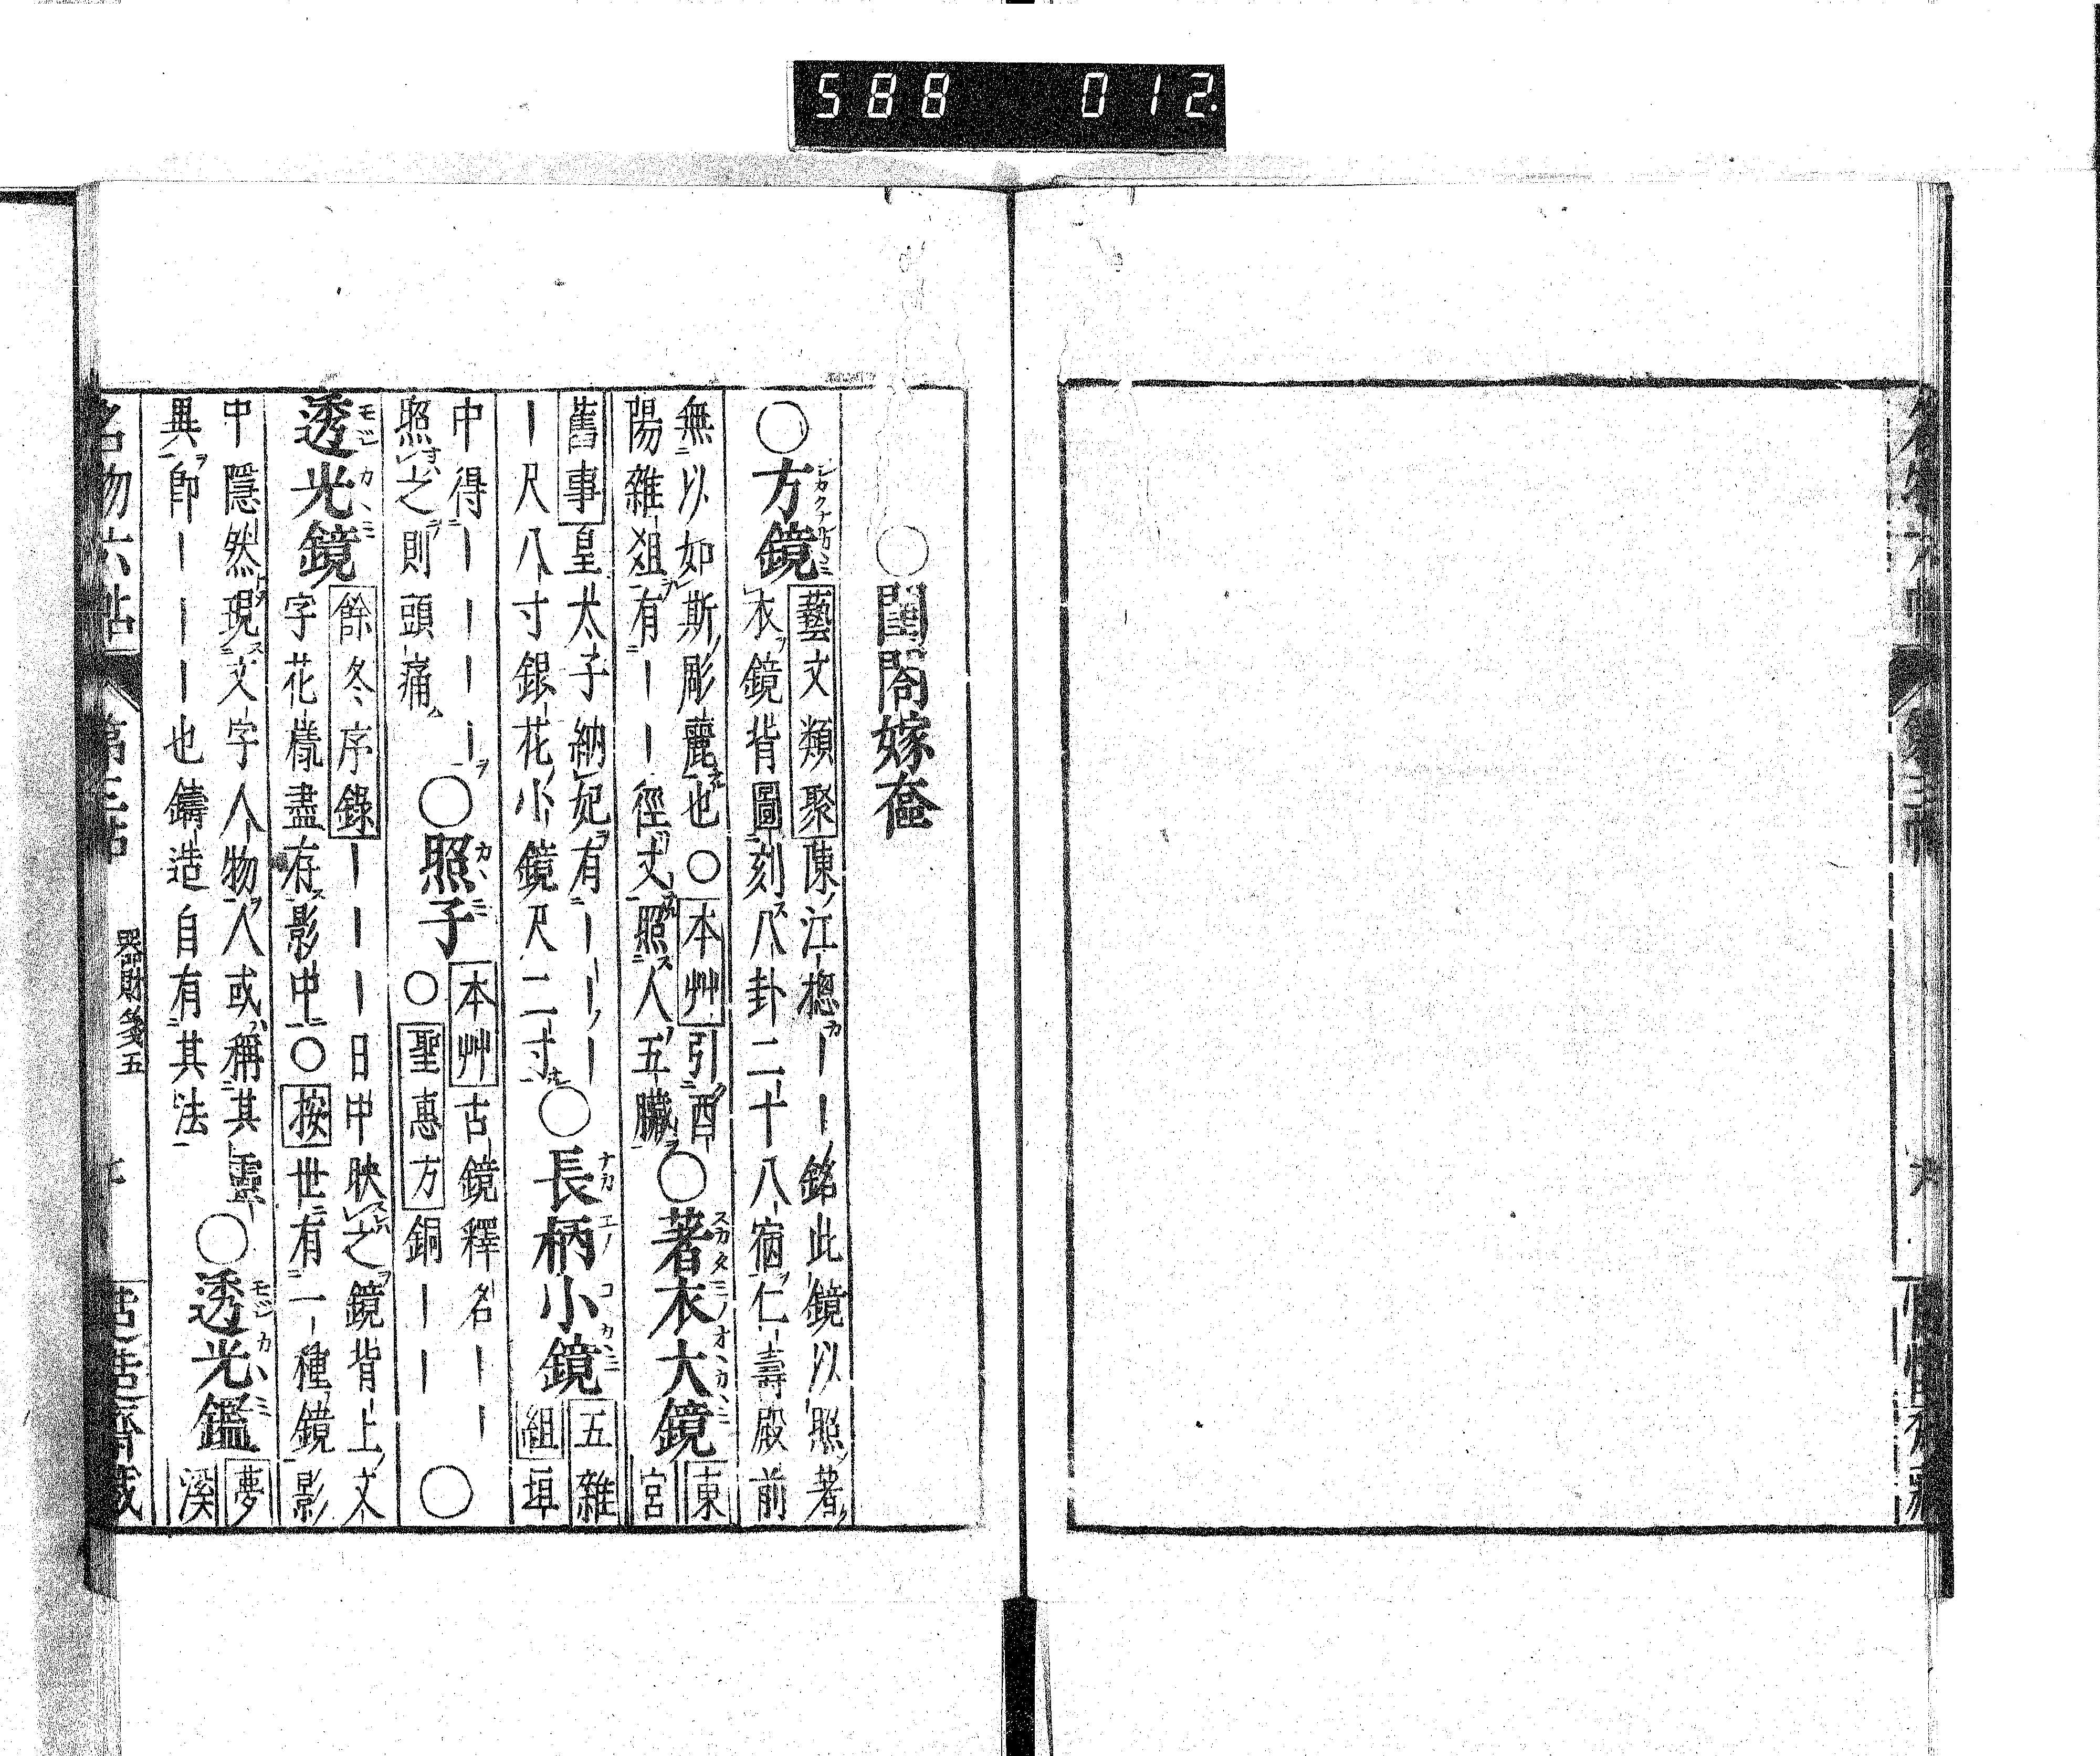 588 012.
○閨閤嫁奩
○方鏡 藝文類聚陳江總｜｜銘此鏡以照著
衣鏡背圖刻八卦二十八宿仁壽殿前
無以如斯彫麗也○本艸引酉
陽雜俎有｜｜｜徑丈照人五臟○著衣大鏡 東
宮
舊事皇太子納妃有｜｜｜｜
｜尺八寸銀花小鏡尺二寸○長柄小鏡 五雜
組垣
中得｜｜｜｜
照之則頭痛○照子 本艸古鏡釋名｜｜
○聖惠方銅｜｜ ○
透光鏡 餘冬序錄｜｜｜日中映之鏡背上文
字花樣盡存影中○按世有一種鏡影
中隱然現文字人物人或稱其靈
異卽｜｜｜也鑄造自有其法○透光鑑 夢
溪
名物六帖 第三帖 器財箋五